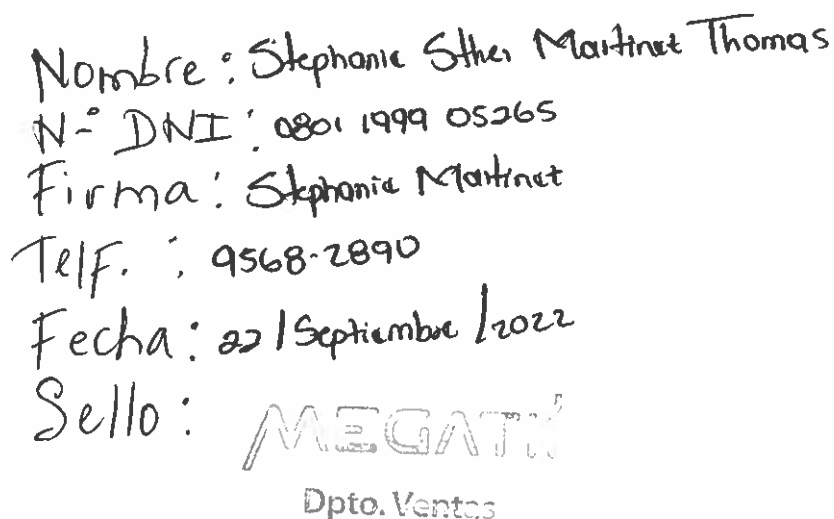 Nombre: Stephanie Sther Martinet Thomas
N-º DNI: 0801 1999 05265
Firma: Stephanie Martinet
Telf. : 9568-2890
Fecha: 22/Septiembre/2022
Sello:
Dpto. Ventas